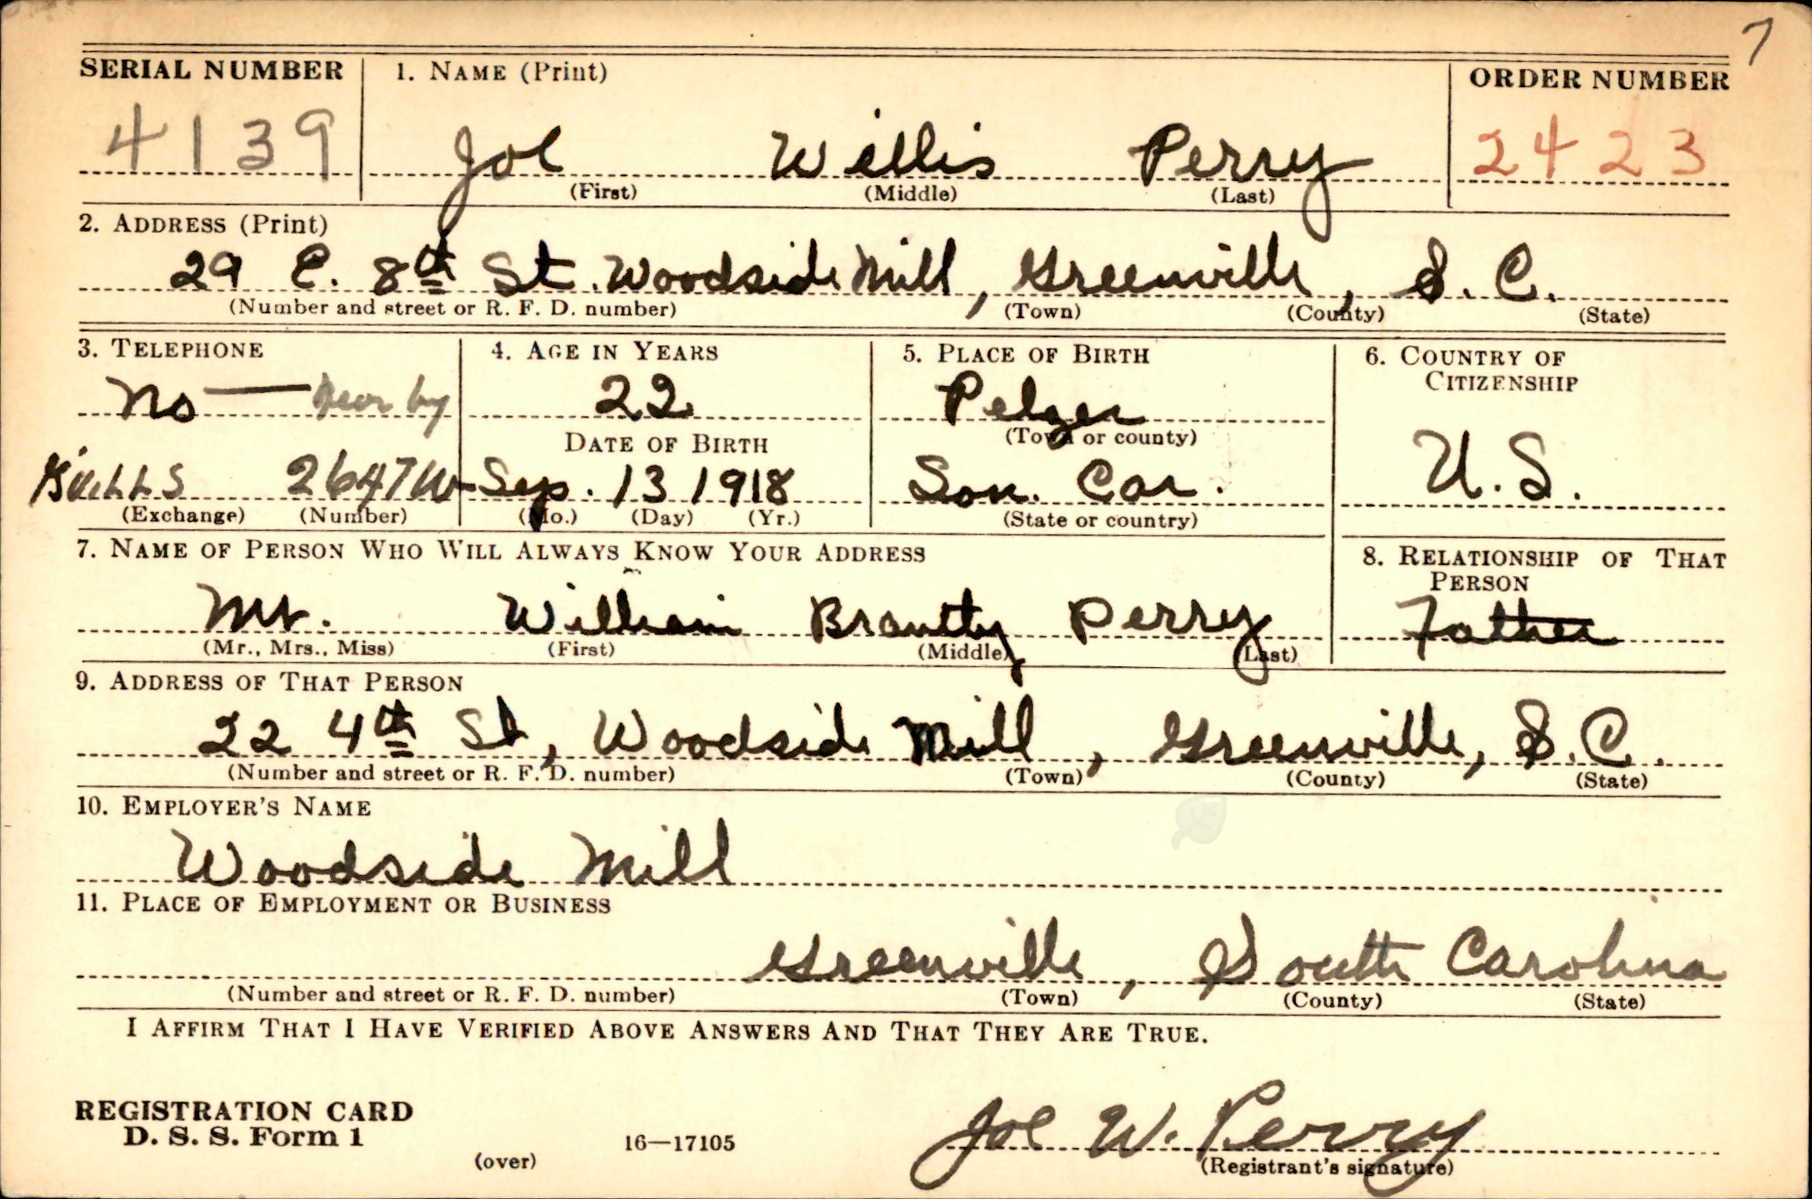 7
SERIAL NUMBER 1. NAME (Print) ORDER NUMBER
4139 Joe Willis Perry 2423
(First) (Middle) (Last)
2. ADDRESS (Print)
29 E. 8th St. Woodside Mill, Greenville, S. C.
(Number and street or R. F. D. number) (Town) (County) (State)
3. TELEPHONE 4. AGE IN YEARS 5. PLACE OF BIRTH 6. COUNTRY OF
CITIZENSHIP
No — Near by 22 Pelzer
DATE OF BIRTH (Town or county)
2647W Sep. 13 1918 Sou. Car. U.S.
(Exchange) (Number) (Mo.) (Day) (Yr.) (State or country)
7. NAME OF PERSON WHO WILL ALWAYS KNOW YOUR ADDRESS 8. RELATIONSHIP OF THAT
PERSON
Mr. William Brantly Perry Father
(Mr., Mrs., Miss) (First) (Middle) (Last)
9. ADDRESS OF THAT PERSON
22 4th St, Woodside Mill, Greenville, S.C.
(Number and street or R. F. D. number) (Town) (County) (State)
10. EMPLOYER'S NAME
Woodside Mill
11. PLACE OF EMPLOYMENT OR BUSINESS
Greenville, South Carolina
(Number and street or R. F. D. number) (Town) (County) (State)
I AFFIRM THAT I HAVE VERIFIED ABOVE ANSWERS AND THAT THEY ARE TRUE.
REGISTRATION CARD
D. S. S. Form 1
(over) 16—17105 Joe W. Perry
(Registrant's signature)